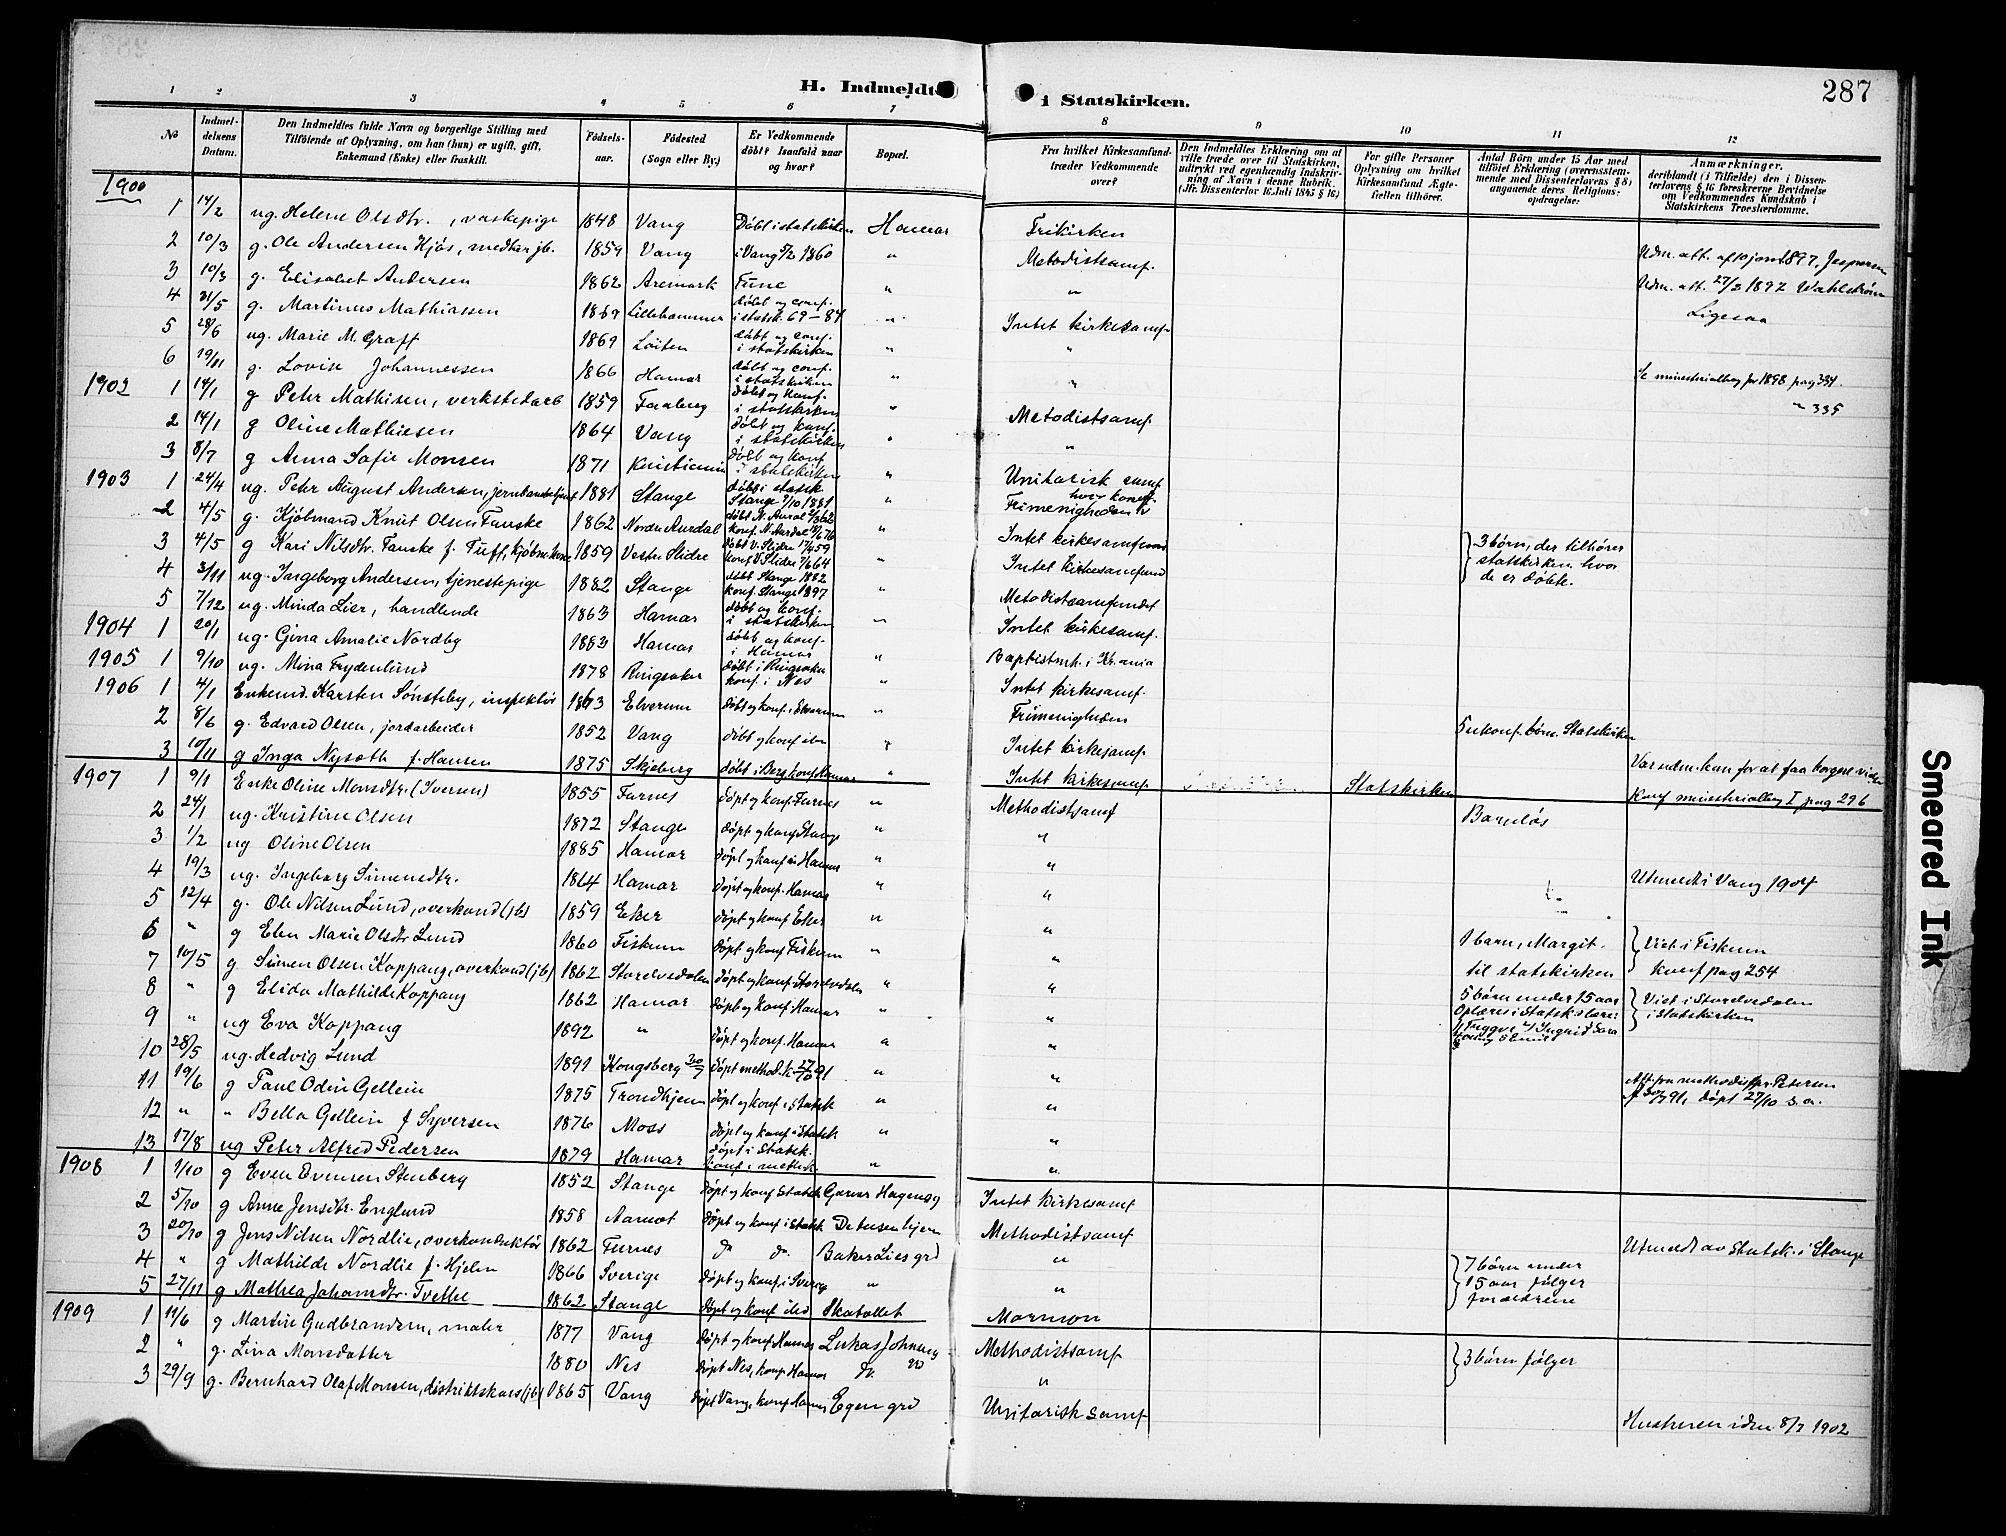 287
H. Indmeldte i Statskirken.
1 2 3 4 5 6 7 8 9 10 11 12
No
Indmeldelsens Datum.
Den Indmeldtes fulde Navn og borgerlige Stilling med Tilføiende af Oplysning, om han (hun) er ugift, gift, Enkemand (Enke) eller fraskilt.
Fødselsaar.
Fødested (Sogn eller By.)
Er Vedkommende døbt? Isaafald naar og hvor?
Bopæl.
Fra hvilket Kirkesamfund træder Vedkommende over?
Den Indmeldtes Erklæring om at ville træde over til Statskirken, udtrykt ved egenhændig Indskrivning af Navn i denne Rubrik. (Jfr. Dissenterlov 16 Juli 1845 § 16.)
For gifte Personer Oplysning om hvilket Kirkesamfund Ægtefællen tilhører.
Antal Børn under 15 Aar med tilføiet Erklæring (overensstemmende med Dissenterlovens § 8) angaaende deres Religionsopdragelse:
Anmærkninger, deriblandt (i Tilfælde) den i Dissenterlovens § 16 foreskrevne Bevidnelse om Vedkommendes Kundskab i Statskirkens Troeslærdomme.
1900
1 14/2 ug. Helene Olsdtr., vaskepige 1848 Vang Døbt i statskirken Hamar Frikirken
2 10/3 g. Ole Andersen Kjøs, medhar jb. 1859 Vang i Vang 5/2 1860 " Metodistsamf. Udm. att. af 10 jan 1897. Jespersen
3 10/3 g. Elisabet Andersen 1862 Aremark Fune " " Udm. att. 27/3 1892 Wahlstrøm
4 31/5 g. Martinus Mathiassen 1869 Lillehammer døbt og conf. i statsk. 69-84 " Intet kirkesamf. Ligesaa
5 28/6 ug. Marie M. Graff 1869 Løiten døbt og conf. i statskirken " "
6 19/11 g. Lovise Johannessen 1866 Hamar døbt og conf. i statskirken " " Se ministerialbog for 1898 pag 334.
1902 1 14/1 g Peter Mathisen, verkstedarb 1859 Faaberg Døbt og konf. i statskirken " Metodistsamf. " 335
2 14/1 g Oline Mathiesen 1864 Vang Døbt og konf. i statskirken " "
3 8/7 g Anna Sofie Monsen 1871 Kristiania Døbt og konf i statskirken " Unitarisk samf
1903 1 24/4 ug. Peter August Andersen, jernbanebetjent 1881 Stange døbt i statsk. Stange 9/10 1881 " Frimenigheden hvor konf.
2 4/5 g. Kjølmand Knut Olsen Fanske 1862 Nordre Aurdal døbt N. Aurdal 2/3 62 konf. N. Aurdal 18/6 76 " Intet kirkesamfund
3 4/5 g Kari Nilsdtr. Fanske f. Tuff, kjøbm.kone 1859 Vestre Slidre døbt V. Slidre 17/4 59 konf V. Slidre 7/6 64 " Intet kirkesamfund 3 børn, der tilhører statskirken, hvor de er døbte.
4 3/11 ug. Ingeborg Andersen, tjenestepige 1882 Stange døbt Stange 1882 konf. Stange 1897 " Metodistsamfundet
5 7/12 ug. Minda Lier, handlende 1863 Hamar døbt og konf. i statskirken " Intet kirkesamf.
1904 1 20/1 ug. Gina Amalie Nordby 1883 Hamar døbt og konf. i Hamar Baptistmh. i Kr.ania
1905 1 9/10 ug. Mina Frydenlund 1878 Ringsaker døbt i Ringsaker konf. i Nes " Intet kirkesamf.
1906 1 4/1 Enkemd. Karsten Sønsteby, inspektør 1863 Elverum døbt og konf. i Elverum " Frimenigheden
2 8/6 g. Edvard Olsen, jordarbeider 1852 Vang døbt og konf. " Intet kirkesamf. 5 ukonf. børn. Statskirken
3 10/11 g Inga Nysæth f. Hansen 1875 Skjeberg døbt i Berg konf Hamar " Intet kirkesamf. Statskirken Var udm. kun for at faa borgerl. vielse Konf ministerialbog I pag 296
1907 1 9/1 Enke Oline Monsdtr. (Iversen) 1855 Furnes døpt og konf. Furnes " Methodistsamf Barnløs
2 24/1 ug. Kristine Olsen 1872 Stange døpt og konf Stange " "
3 1/2 ug Oline Olsen 1885 Hamar døpt og konf. i Hamar " "
4 19/3 ug. Ingeborg Simensdtr. 1864 Hamar døpt og konf. Hamar " " Utmeldt i Vang 1904
5 12/4 g. Ole Nilsen Lund, overkond (jb) 1859 Eker døpt og konf Eker " "
6 " g Elen Marie Olsdtr Lund 1860 Fiskum døpt og konf Fiskum " " 1 barn, Margit. til statskirken Viet i Fiskum konf pag 254
7 10/5 g Simen Olsen Koppang, overkond (jb) 1862 Storelvedalen døpt og konf. Storelvdalen " "
8 " g Elida Mathilde Koppang 1862 Hamar døpt og konf. Hamar " " 5 børn under 15 aar Oplæres i Statsk.s lære: Trygve Ingrid Sara Viet i Storelvedalen i Statskirken
9 " ug Eva Koppang 1892 " døpt og konf. Hamar " "
10 28/5 ug. Hedvig Lund 1891 Kongsberg 30/7 døpt method. k. 27/10 91 " " Att. fra methodistpr. Petersen f 30/7 91, døpt 27/10 s. a.
11 19/6 g Paul Odin Gellein 1875 Trondhjem døpt og konf i Statsk " "
12 " " Bella Gellein f Syversen 1876 Moss døpt og konf i Statsk " "
13 17/8 ug Peter Alfred Pedersen 1879 Hamar døpt i Statsk. konf i methk. " "
1908 1 1/10 g Even Evensen Stenberg 1852 Stange døpt og konf Statsk Garver Hagens g Intet kirkesamf
2 5/10 g Anne Jensdtr. Englund 1858 Aamot døpt og konf i Statsk De tusen hjem Methodistsamf
3 20/10 g Jens Nilsen Nordlie, overkonduktør 1862 Furnes do do. Baker Lies grd " Utmeldt av Statsk. i Stange
4 " g Mathilde Nordlie f. Hjelm 1866 Sverige døpt og konf. i Sverig " " 7 børn under 15 aar følger forældrene
5 27/11 g Mathea Johansdtr. Tvethe 1862 Stange døpt og konf Skatollet Mormon
1909 1 11/6 g Martin Gudbrandsen, maler 1877 Vang døpt og konf. Hamar Lukas Johnsens grd Methodistsamf 3 børn følger
2 " g. Lina Monsdatter 1880 Nes døpt Nes, konf Hamar do. "
3 29/9 g. Bernhard Olaf Monsen, distriktskass (jb) 1865 Vang døpt Vang, konf Hamar Egen grd Unitarisk Samf Hustruen inden 8/7 1902
Smeared Ink